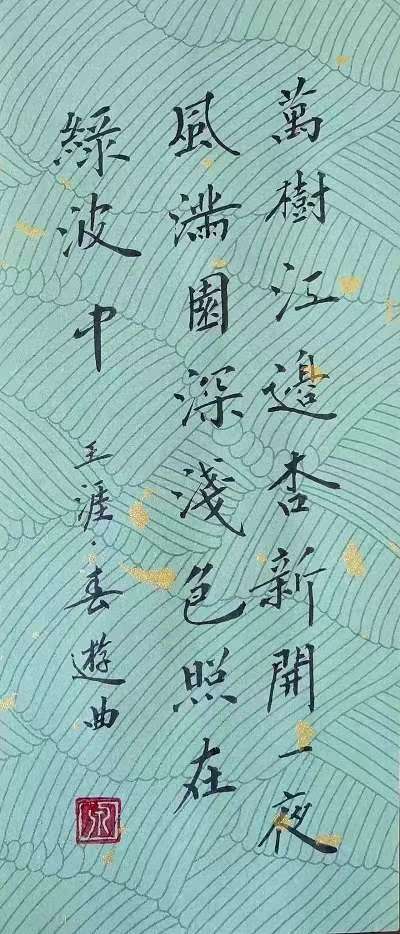 萬樹江邊杏新開一夜
風滿園深淺色照在
綠波中
王涯·春遊曲